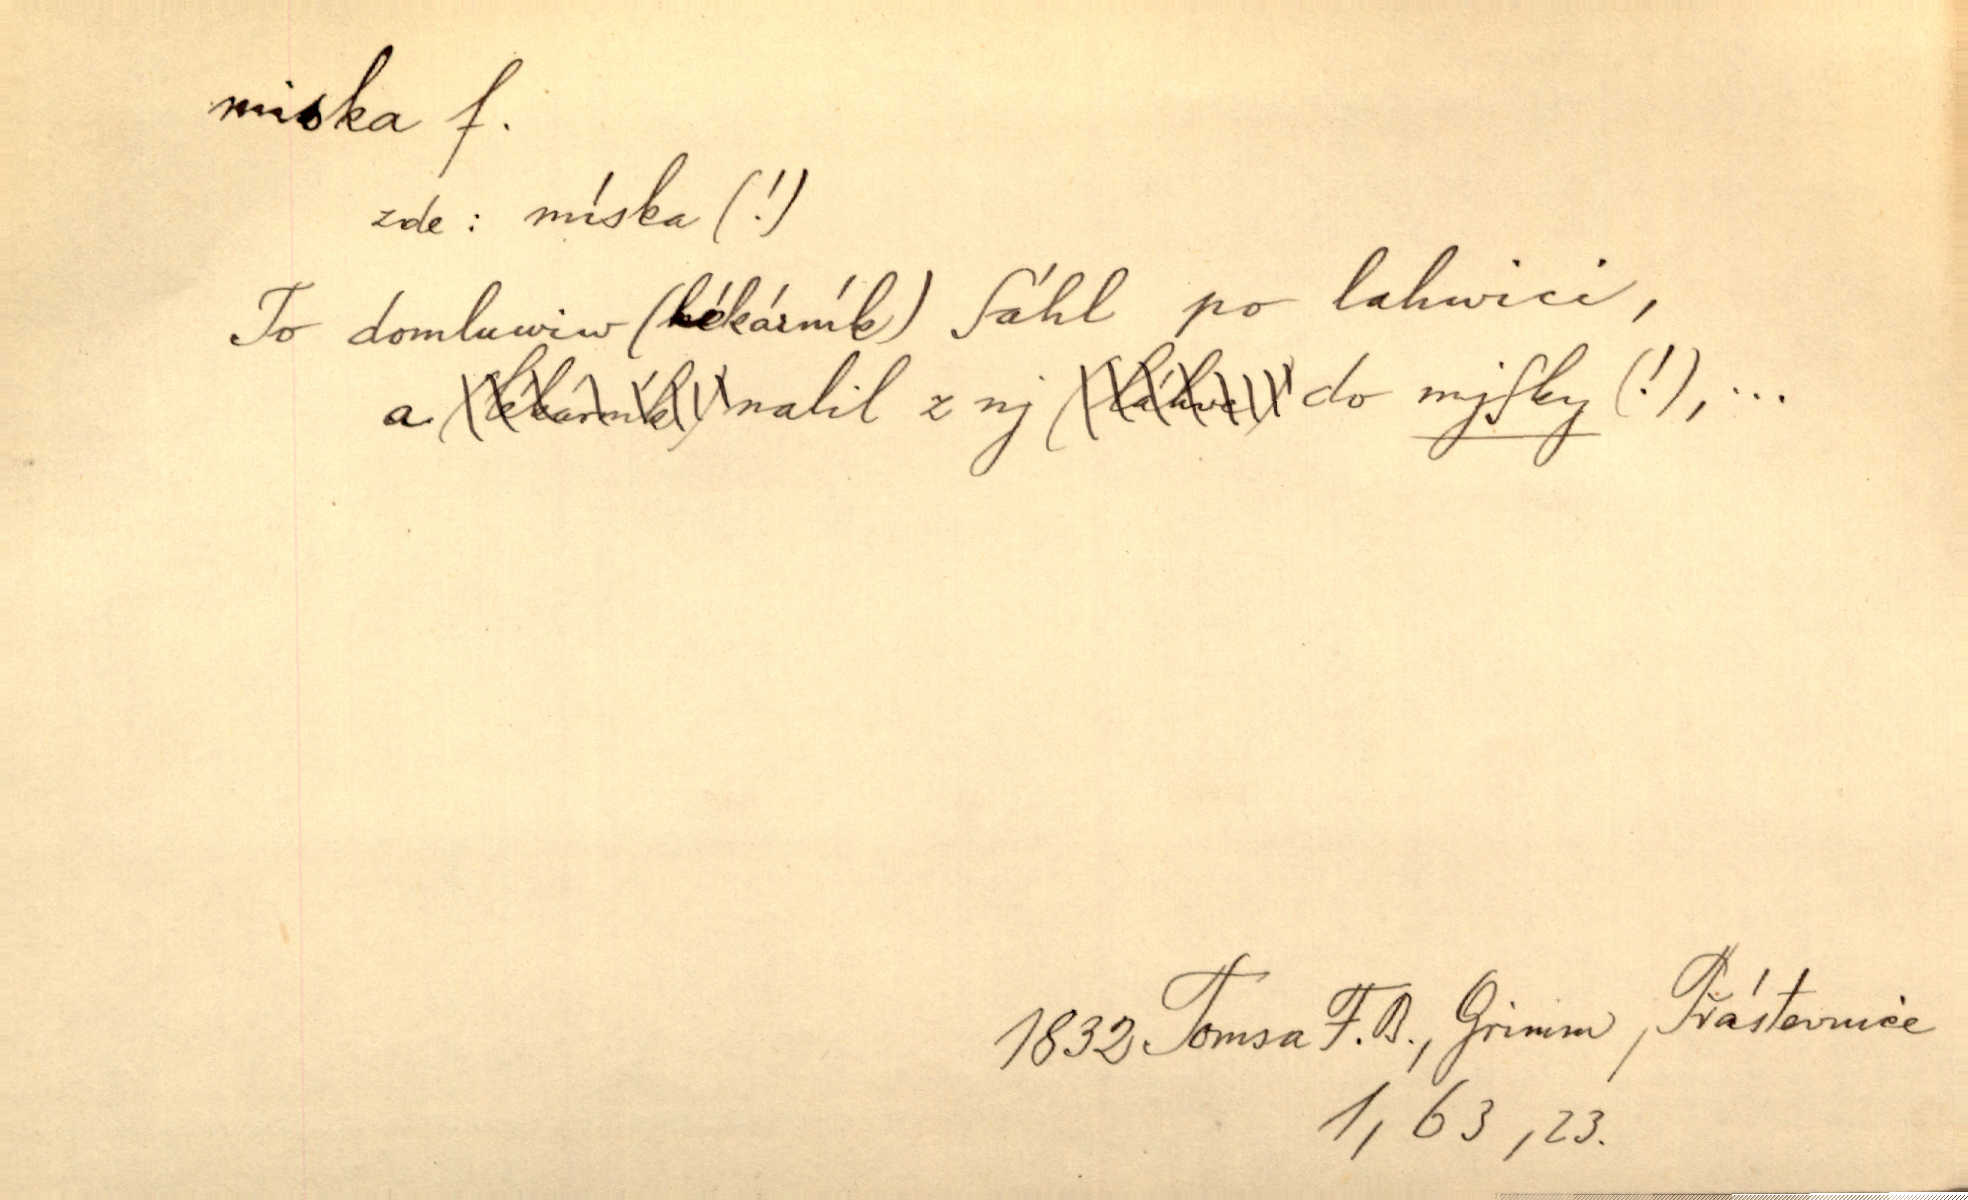 miska f.
zde: míska (!)
To domluwiw (lékárník) sáhl po lahwici,
a (lékárník) nalil z nj (láhve) do mjsky (!), ...
1832 Tomsa F. B., Grimm, Přástevnice
1, 63, 23.